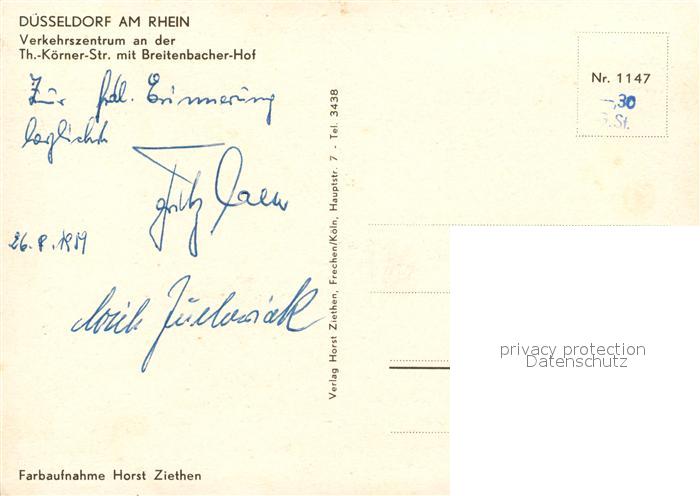 DÜSSELDORF AM RHEIN
Verkehrszentrum an der
Th.-Körner-Str. mit Breitenbacher-Hof
Nr. 1147
—,30
St.
Zur frdl. Erinnerung
Fritz
26. 8. 1959
Verlag Horst Ziethen, Frechen/Köln, Hauptstr. 7 - Tel. 3438
privacy protection
Datenschutz
Farbaufnahme Horst Ziethen